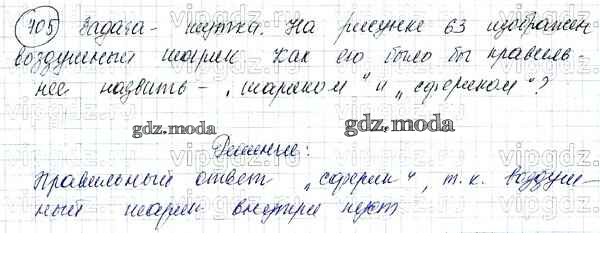 705 Задача - шутка. На рисунке 63 изображен
воздушный шарик. Как его было бы правиль-
нее назвать - "шариком" и "сфериком"?
gdz.moda
gdz.moda
Решение:
Правильный ответ "сферик", т.к. воздуш-
ный шарик внутри пуст